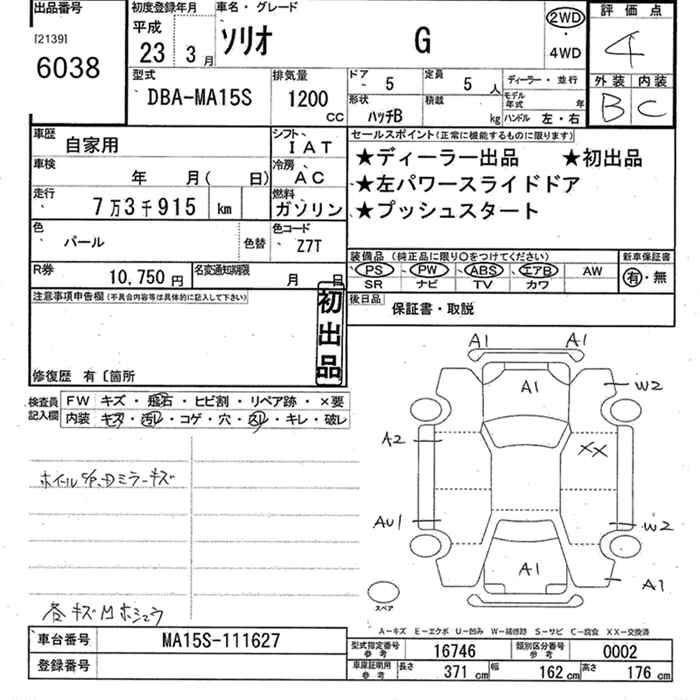 出品番号
[2139]
6038
初度登録年月
平成
23年 3月
車名・グレード
ソリオ G
2WD
・
4WD
評価点
4
外装 内装
B C
型式
DBA-MA15S
排気量
1200 CC
ドア
5
定員
5 人
ディーラー・並行
形状
ハッチB
積載
kg
モデル年式 年
ハンドル 左・右
車歴
自家用
シフト
IAT
車検
年 月( 日)
冷房
AC
走行
7万3千915 km
燃料
ガソリン
色
パール
色替
色コード
Z7T
R券
10,750 円
名変通知期限
月 日
セールスポイント(正常に機能するものに限ります)
★ディーラー出品 ★初出品
★左パワースライドドア
★プッシュスタート
装備品(純正品に限り○をつけてください)
PS PW ABS エアB AW
SR ナビ TV カワ
新車保証書
有・無
後日品
保証書・取説
注意事項申告欄(不具合内容等は具体的に記入して下さい)
初出品
修復歴 有〔箇所
検査員記入欄
FW キズ・飛石・ヒビ割・リペア跡・×要
内装 キズ・汚レ・コゲ・穴・スレ・キレ・破レ
A1 A1
A1
W2
A2
XX
AU1
W2
A1
A1
スペア
A-キズ E-エクボ U-凹み W-補修跡 S-サビ C-腐食 XX-交換済
車台番号
MA15S-111627
登録番号
型式指定番号
参考
16746
類別区分番号
参考
0002
車庫証明用
参考
長さ 371 cm 幅 162 cm 高さ 176 cm